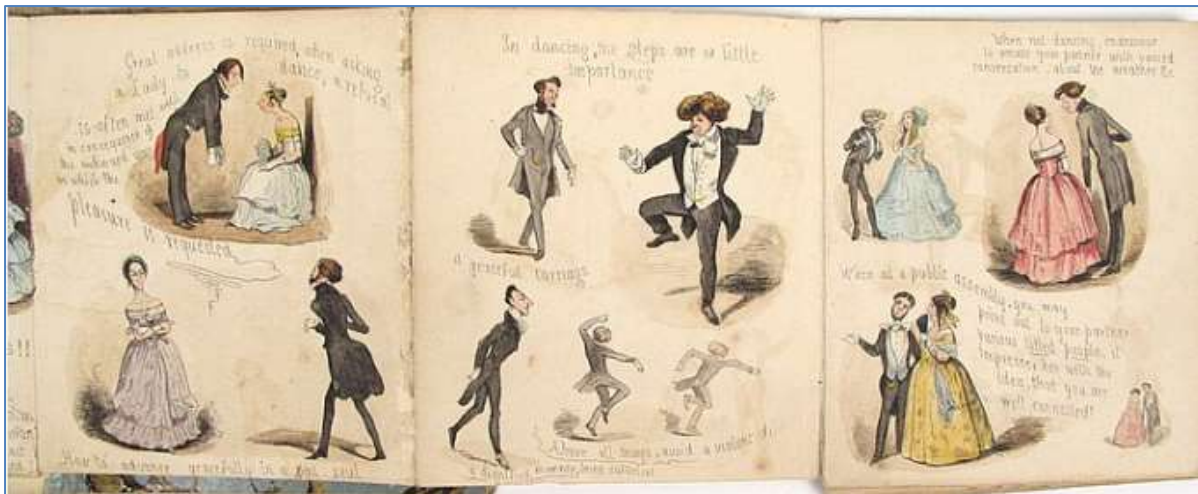 Great address is required when asking
a Lady to dance, a refusal
is often met with
in consequence of
the awkward
in which the
pleasure is requested
How to advance gracefully in a pas seul
s!!
In dancing, the steps are of little
importance
a graceful carriage
Above all things, avoid a violent
a dignified
When not dancing, endeavour
to amuse your partner with
conversation, about the weather &c
When at a public assembly, you may
point out to your partner
various titled people, it
impresses her with the
idea, that you are
well connected!